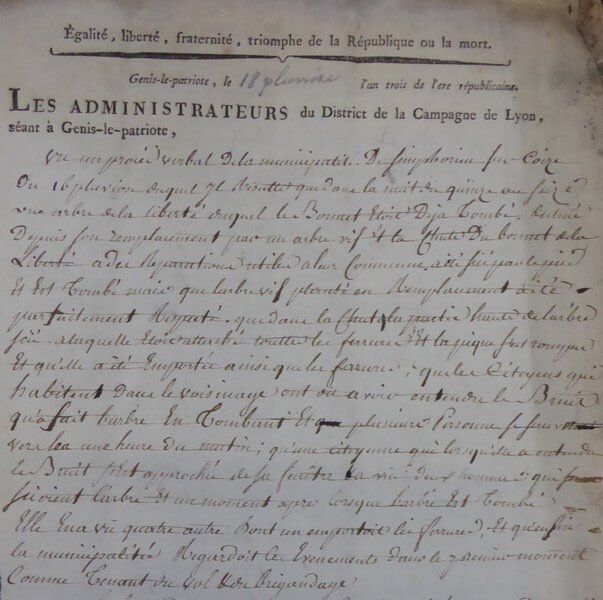 Égalité, liberté, fraternité, triomphe de la République ou la mort.
Genis-le-patriote, le 18 pluviose l'an trois de l'ere républicaine.
LES ADMINISTRATEURS du District de la Campagne de Lyon,
séant à Genis-le-patriote,
Vu un procès verbal De la municipalité De simphorien sur Coize
Du 16 pluviose duquel Il Resulte que dans la nuit du quinze au seize
une arbre de la liberté duquel le Bonnet Etoit Deja Tombé, destiné
Depuis son remplacement par un arbre vif Et la Chute Du bonnet de la
Liberté a des Reparations utiles a leur Commune a été scié par le pied
Et Est Tombé mais que larbre vif planté en Remplacement a été
parfaitement Respecté que dans la Chute la partie haute de larbre
scié a laquelle Etoit attaché toutes les ferrures Et la pique fut rompue
Et quelle a été Emportée ainsi que les ferrures; que les Citoyens qui
habitent Dans le voisinage ont dit avoir entendu le Bruit
qu'a fait larbre En Tombant Et que plusieurs Personne
vers les une heure du matin; qu'une citoyenne qui lorsqu'elle a entendu
le Bruit s'est approchée de sa fenêtre a vu deux hommes qui
scioient l'arbre Et un moment apres lorsque larbre Est Tombé
Elle En a vu quatre autre Dont un emportoit les ferrures, Et qu'enfin
la municipalité Regardoit les Evenements dans le premier moment
Comme Tenant du vol & du brigandage